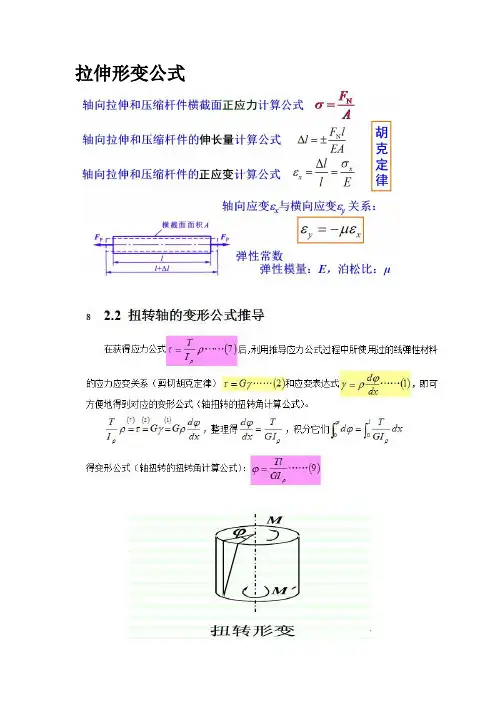 拉伸形变公式
轴向拉伸和压缩杆件横截面正应力计算公式 σ = F_N / A
轴向拉伸和压缩杆件的伸长量计算公式 Δl = ± F_N l / EA
轴向拉伸和压缩杆件的正应变计算公式 ε_x = Δl / l = σ_x / E
胡克定律
轴向应变ε_x与横向应变ε_y 关系:
ε_y = −με_x
横截面面积A
F_P F_P
l
l+Δl
弹性常数
弹性模量:E,泊松比:μ
8 2.2 扭转轴的变形公式推导
在获得应力公式 τ = T / I_ρ ρ……(7) 后,利用推导应力公式过程中所使用过的线弹性材料
的应力应变关系(剪切胡克定律) τ = Gγ……(2) 和应变表达式 γ = ρ dφ / dx ……(1),即可
方便地得到对应的变形公式(轴扭转的扭转角计算公式)。
T / I_ρ ρ =(7) τ =(2) Gγ =(1) Gρ dφ / dx,整理得 dφ / dx = T / GI_ρ,积分它们 ∫₀^φ dφ = ∫₀^l T / GI_ρ dx
得变形公式(轴扭转的扭转角计算公式): φ = Tl / GI_ρ ……(9)
φ M
M´
扭转形变